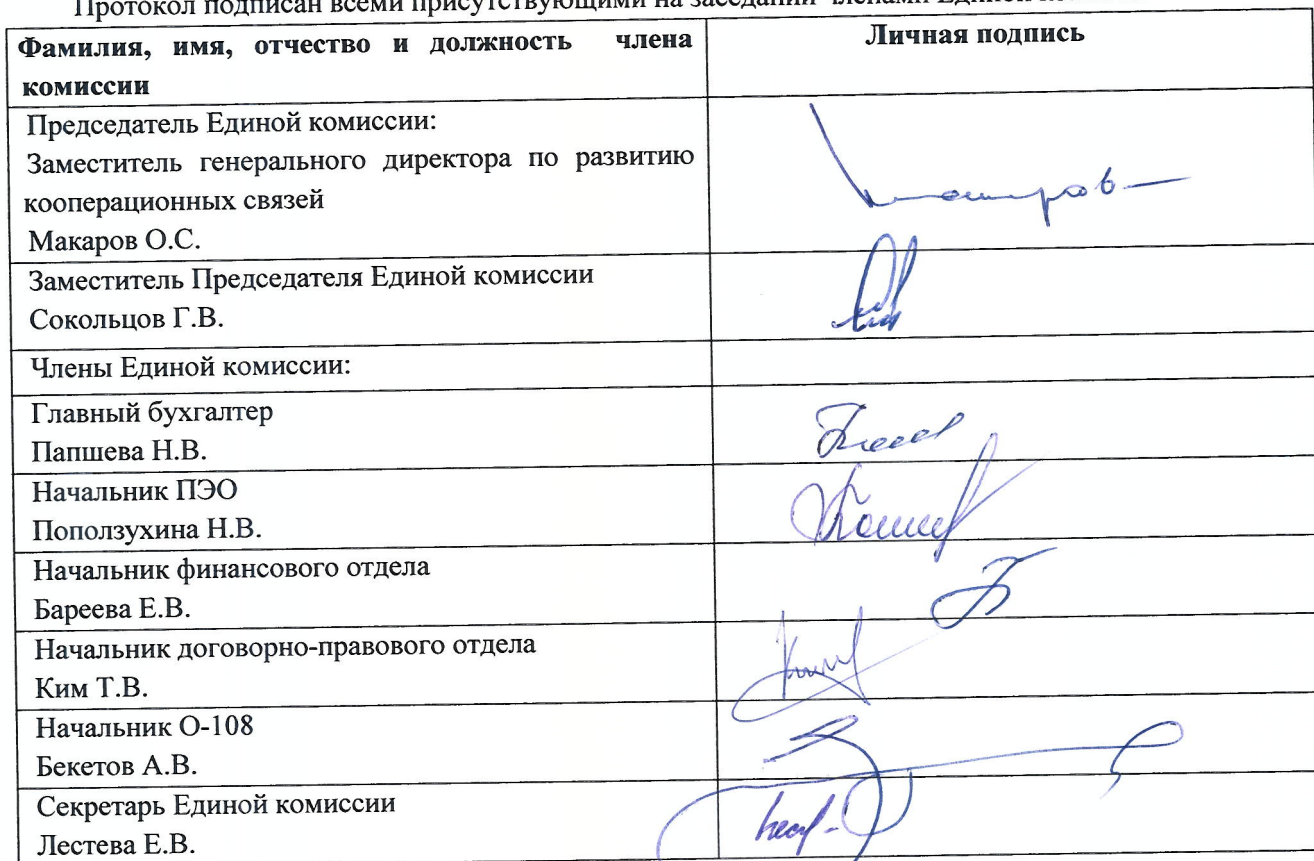 Протокол подписан всеми присутствующими на заседании членами Единой
Фамилия, имя, отчество и должность члена
комиссии
Личная подпись
Председатель Единой комиссии:
Заместитель генерального директора по развитию
кооперационных связей
Макаров О.С.
Заместитель Председателя Единой комиссии
Сокольцов Г.В.
Члены Единой комиссии:
Главный бухгалтер
Папшева Н.В.
Начальник ПЭО
Поползухина Н.В.
Начальник финансового отдела
Бареева Е.В.
Начальник договорно-правового отдела
Ким Т.В.
Начальник О-108
Бекетов А.В.
Секретарь Единой комиссии
Лестева Е.В.